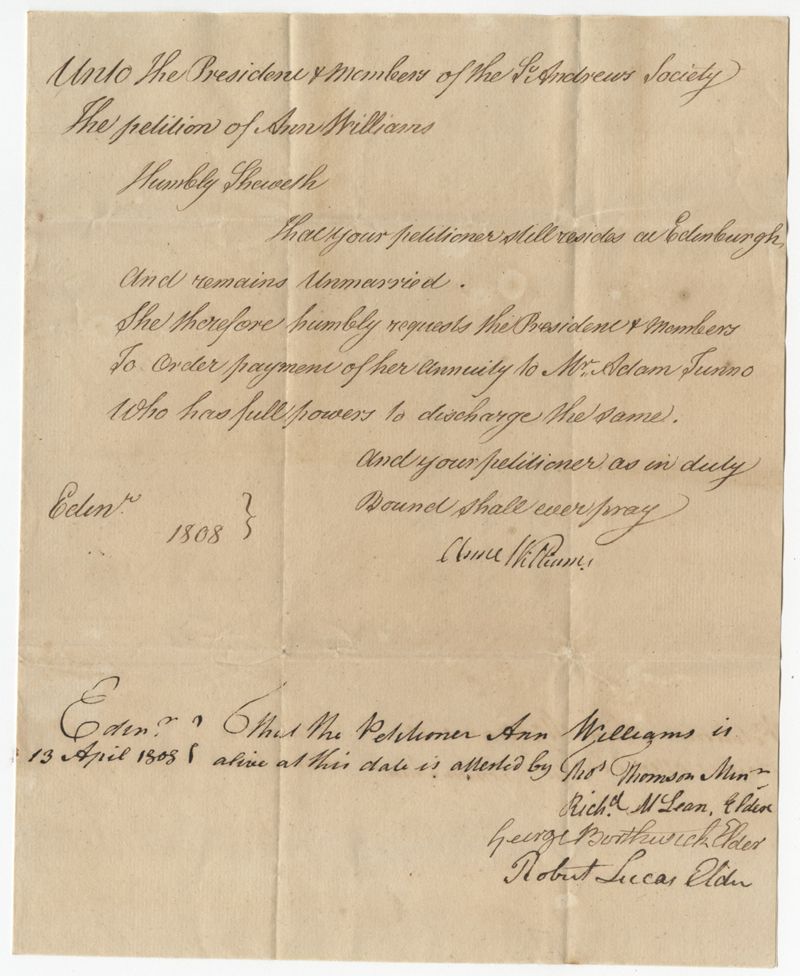 Unto the President & Members of the St. Andrews Society
The petition of Ann Williams
Humbly Sheweth
That your petitioner still resides at Edinburgh,
And remains Unmarried.
She therefore humbly requests the President & Members
To Order payment of her Annuity to Mr. Adam Tunno
Who has full powers to discharge the same.
And your petitioner as in duty
Bound shall ever pray
Edinr.
1808
Anne Williams
Edinr. That the Petitioner Ann Williams is
13 April 1808 alive at this date is attested by Thos Thomson Minr
Richd. McLean, Elder
George Borthwick Elder
Robert Lucas Elder